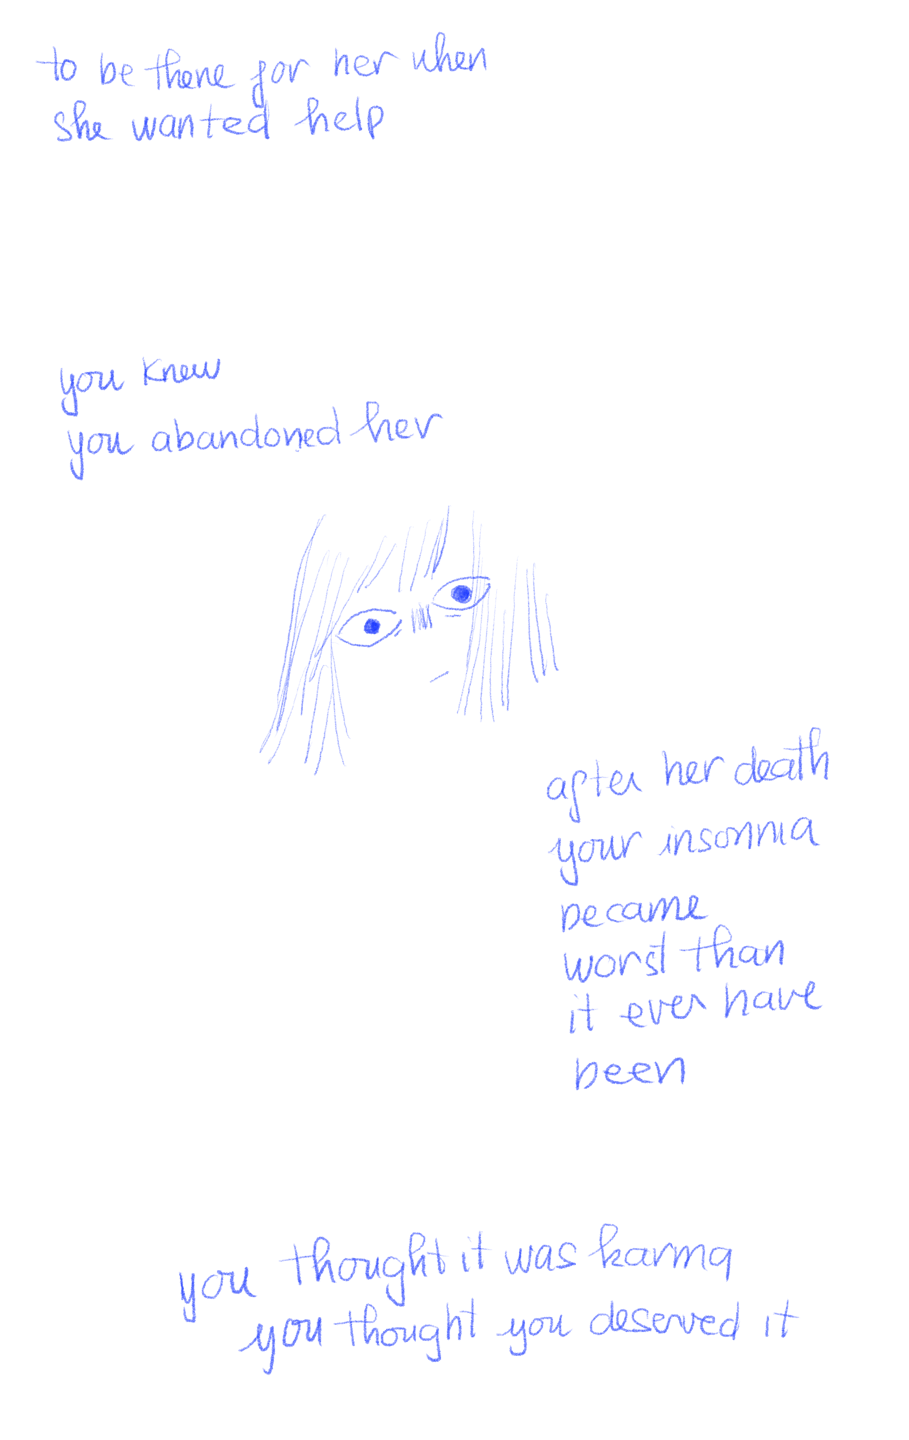 to be there for her when
she wanted help
you knew
you abandoned her
after her death
your insomnia
became
worst than
it ever have
been
you thought it was karma
you thought you deserved it